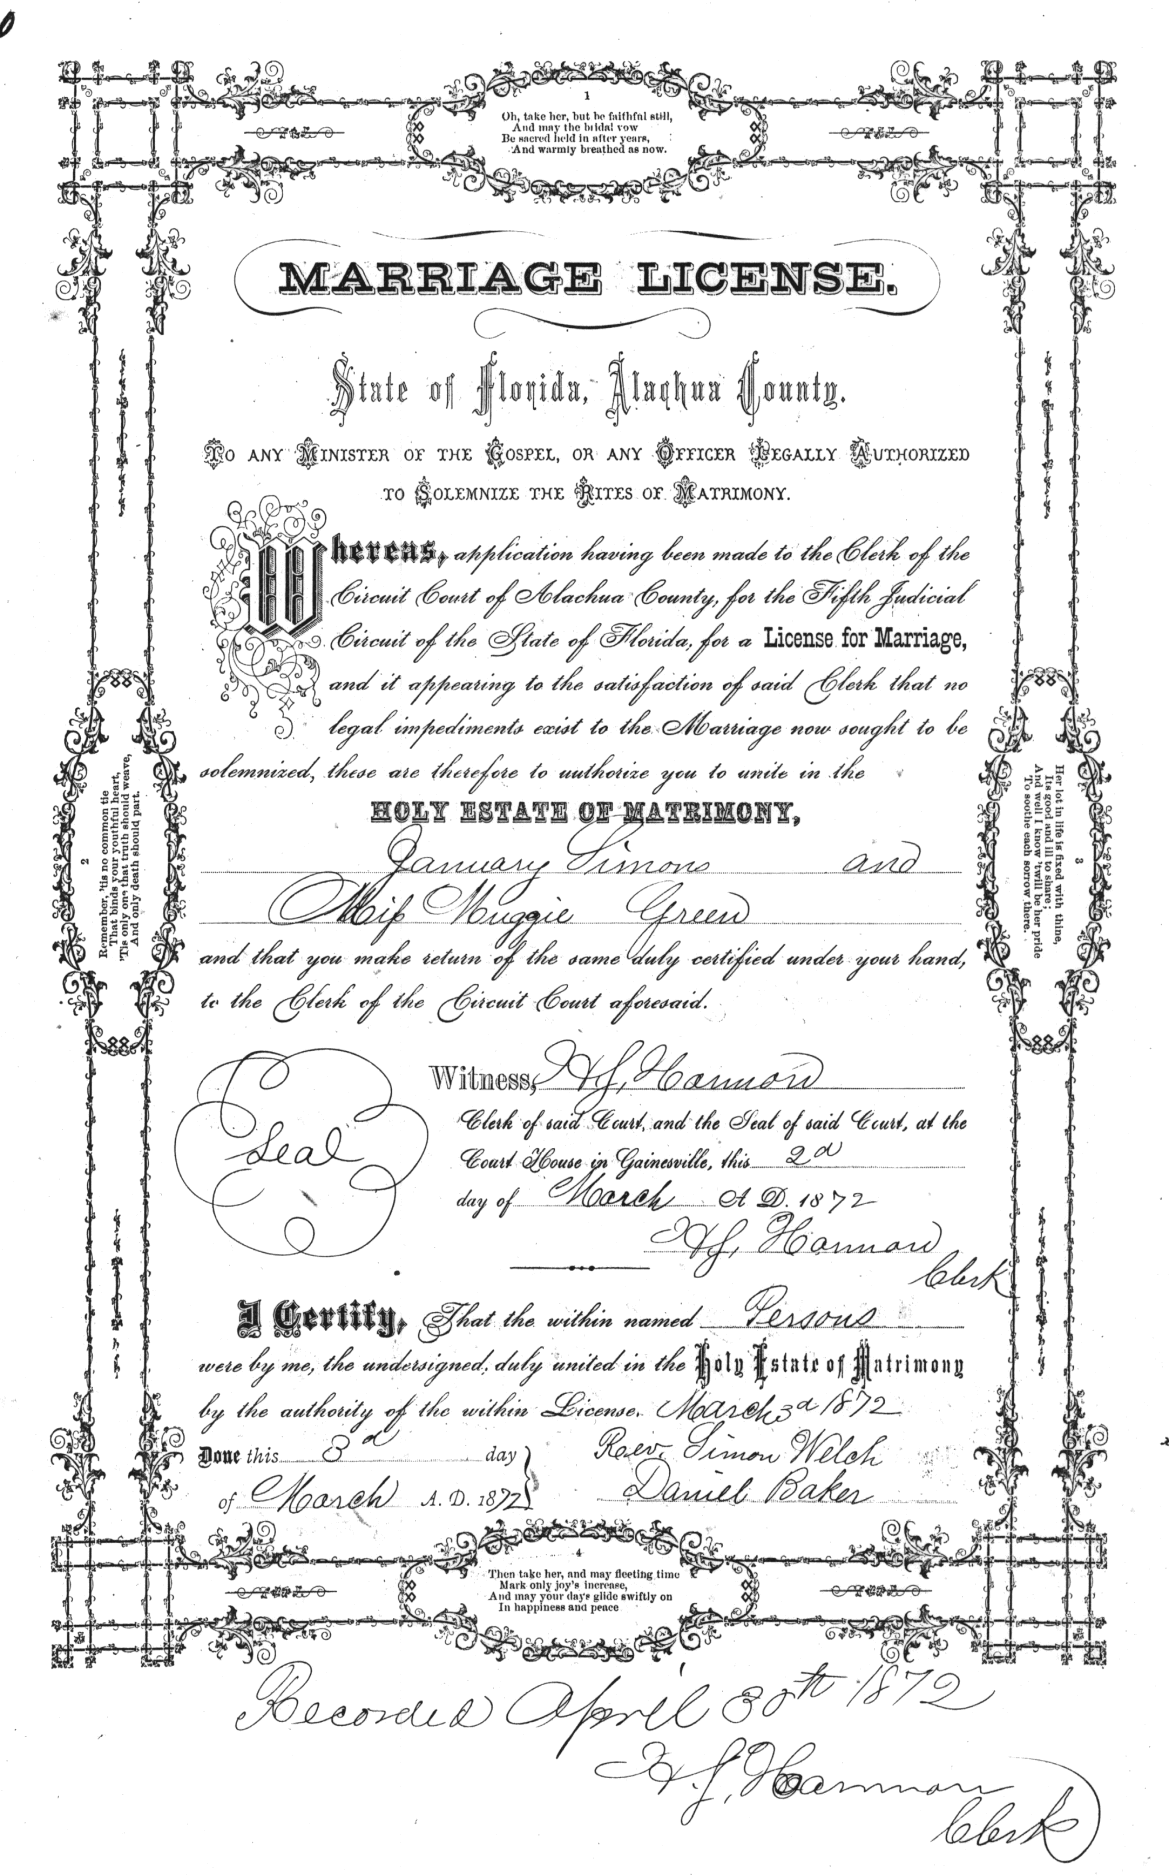 1
Oh, take her, but be faithful still,
And may the bridal vow
Be sacred held in after years,
And warmly breathed as now.
MARRIAGE LICENSE.
State of Florida, Alachua County.
TO ANY MINISTER OF THE GOSPEL, OR ANY OFFICER LEGALLY AUTHORIZED
TO SOLEMNIZE THE RITES OF MATRIMONY.
Whereas, application having been made to the Clerk of the
Circuit Court of Alachua County, for the Fifth Judicial
Circuit of the State of Florida, for a License for Marriage,
and it appearing to the satisfaction of said Clerk that no
legal impediments exist to the Marriage now sought to be
solemnized, these are therefore to authorize you to unite in the
HOLY ESTATE OF MATRIMONY,
January Simons and
Miss Muggie Green
and that you make return of the same duly certified under your hand,
to the Clerk of the Circuit Court aforesaid.
2
Remember, 'tis no common tie
That binds your youthful heart,
'Tis only one that truth should weave,
And only death should part.
3
Her lot in life is fixed with thine,
Its good and ill to share;
And well I know 'twill be her pride
To soothe each sorrow there.
Seal
Witness, H.J. Hannon
Clerk of said Court, and the Seal of said Court, at the
Court House in Gainesville, this 2d
day of March A D. 1872
H.J. Hannon
Clerk
I Certify, That the within named Persons
were by me, the undersigned, duly united in the Holy Estate of Matrimony
by the authority of the within License. March 3d 1872
Done this 3d day Rev. Simon Welch
of March A. D. 1872 Daniel Baker
4
Then take her, and may fleeting time
Mark only joy's increase,
And may your days glide swiftly on
In happiness and peace
Recorded April 30th 1872
H.J. Hannon
Clerk